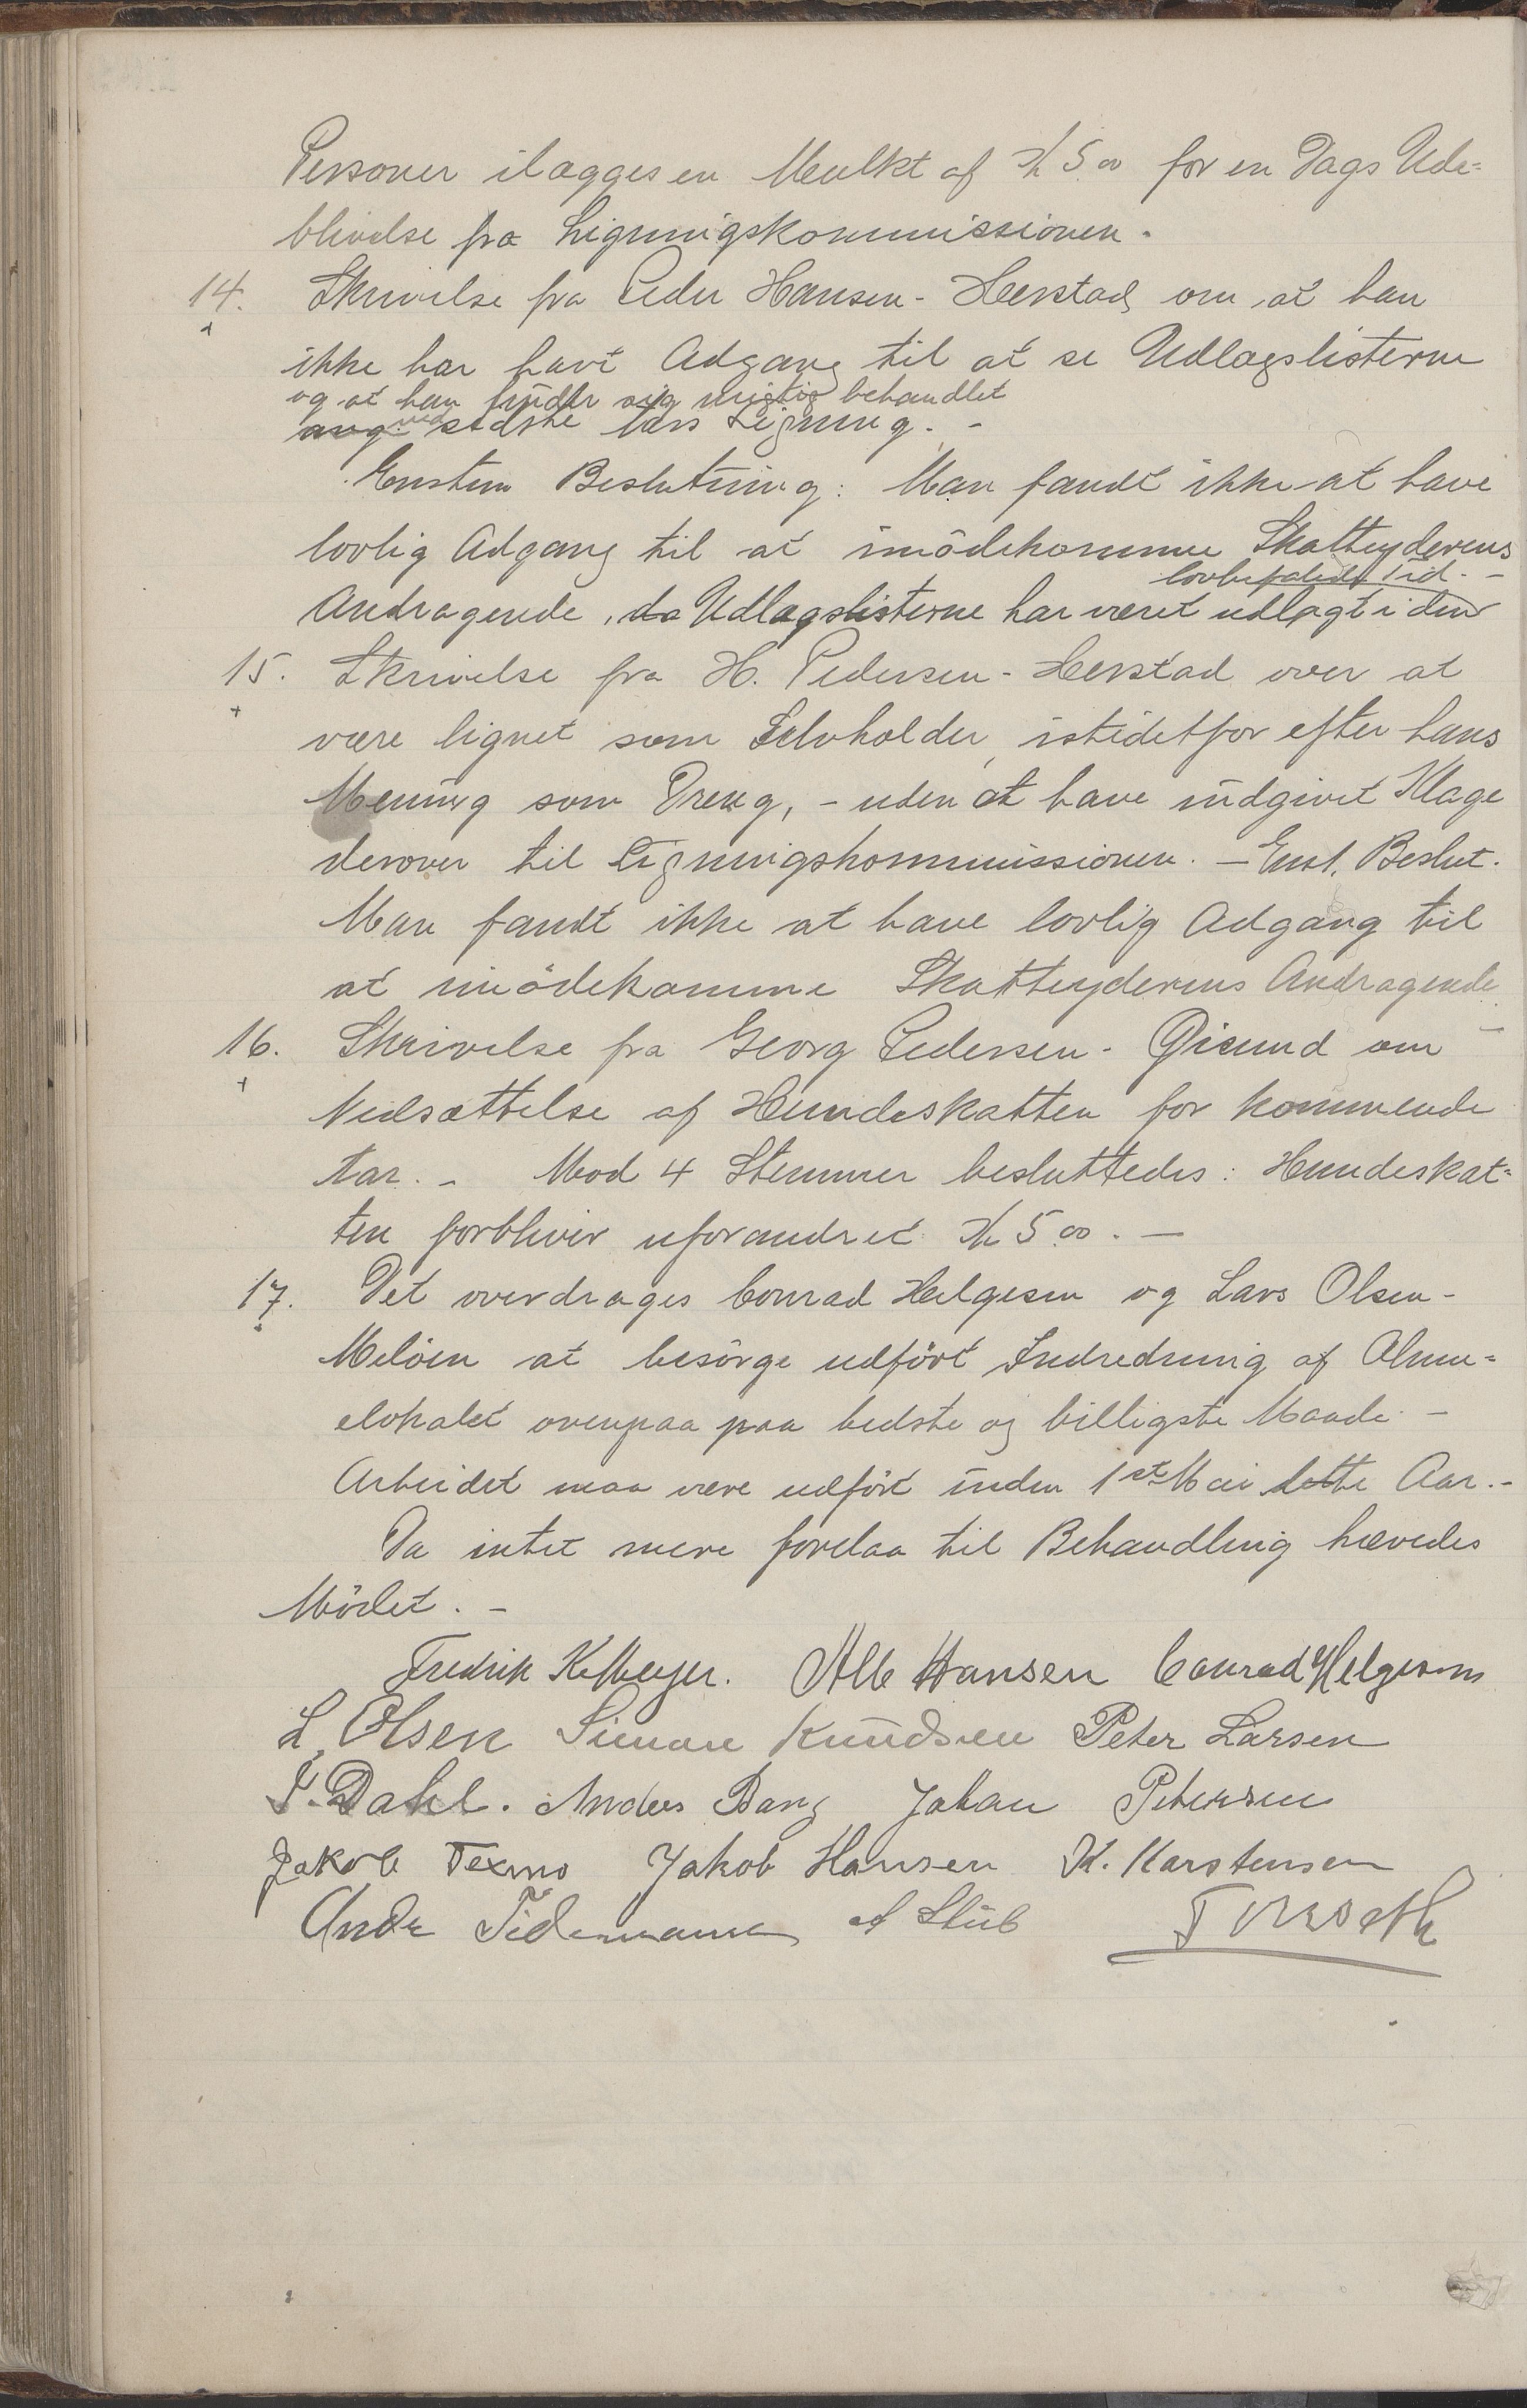 Personer ilægges en Mulkt af Kr 5.00 for en Dags Ude-
blivelse fra Ligningskommissionen.
14. Skrivelse fra Peder Hansen - Herstad om at han
ikke har havt Adgang til at se Udlagslisterne
og at han finder sig urigtig behandlet
ang. ved sidste Aars Ligning. -
Enstem Beslutning: Man fandt ikke at have
lovlig Adgang til at imödekomme Skatteyderens
lovbefalede Tid. -
Andragende, da Udlagslisterne har været udlagt i den
15. Skrivelse fra H. Pedersen - Herstad over at
være lignet som Selvholder, istedetfor efter hans
Mening som Dreng, - uden at have indgivet Klage
derover til Ligningskommissionen. - Enst. Beslut.
Man fandt ikke at have lovlig Adgang til
at imödekomme Skatteyderens Andragende
16. Skrivelse fra Georg Pedersen - Gisund om
Nedsættelse af Hundeskatten for kommende
Aar. - Mod 4 Stemmer besluttedes: Hundeskat-
ten forbliver uforandret Kr 5.00. -
17. Det overdrages Conrad Helgesen og Lars Olsen -
Melöen at besörge udfört Indredning af Alm-
elokalet ovenpaa paa bedste og billigste Maade. -
Arbeidet maa være udfört inden 1ste Mai dette Aar. -
Da intet mere forelaa til Behandling hævedes
Mödet. -
Fredrik K Meyer. Alb Hansen Conrad Helgesen
L. Olsen Simon Knudsen Peter Larsen
P. Dahl. Anders Bang Johan Petersen
Jakob Texmo Jakob Hansen K. Karstensen
Andr Tidemann A Stub Forseth